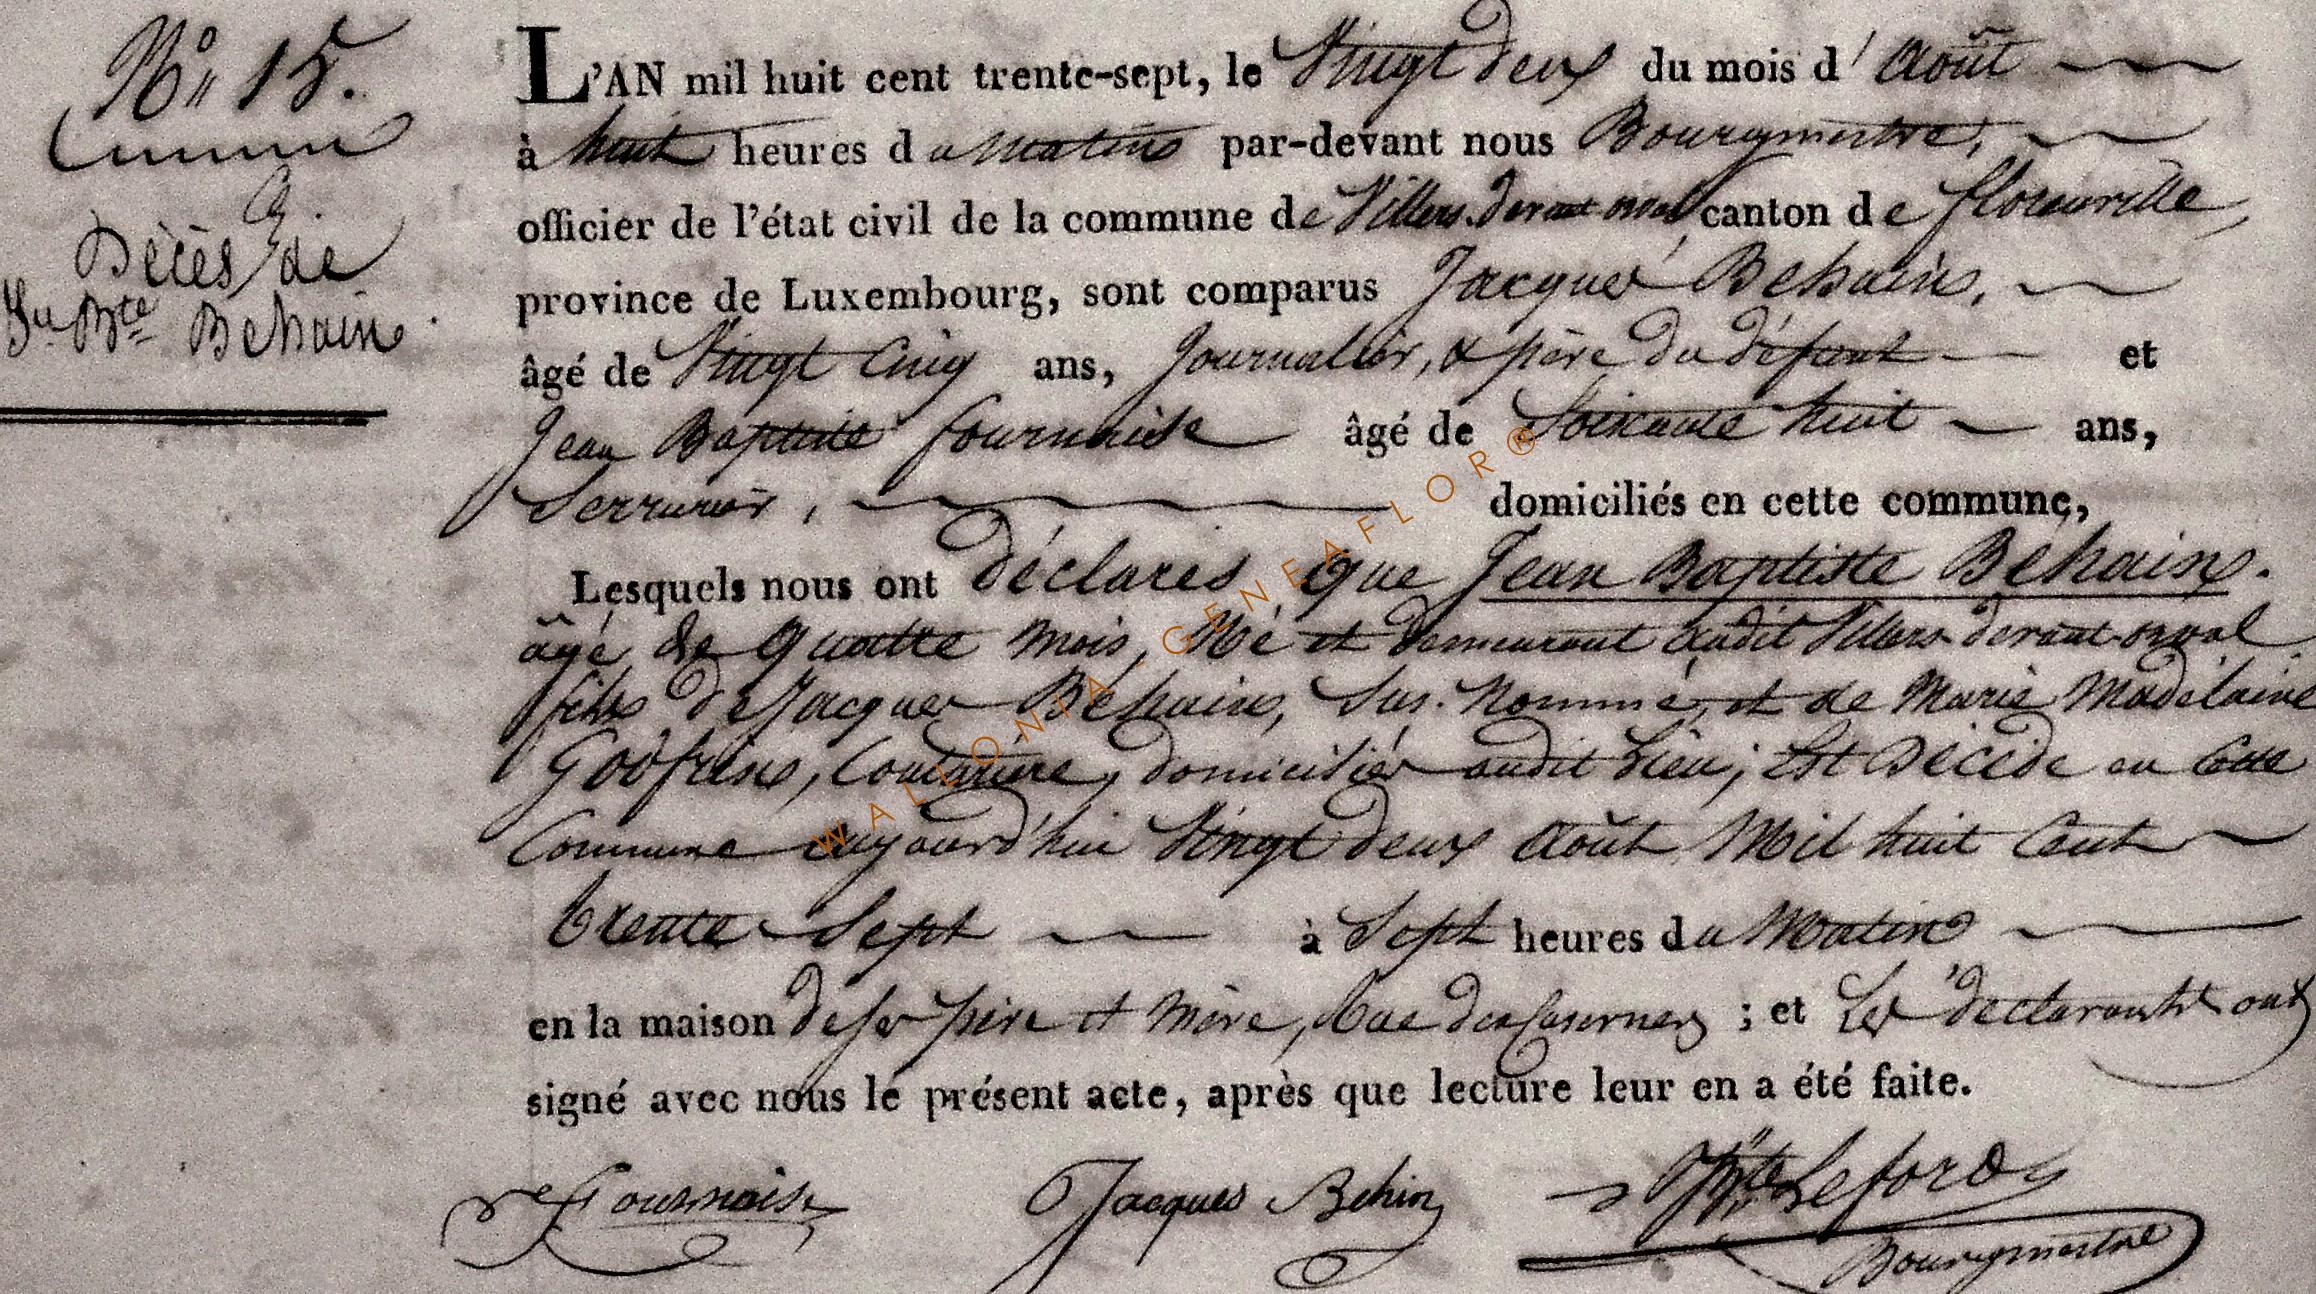 N° 15.
Décès de
Jn Bte Behain.
L'AN mil huit cent trente-sept, le Vingt deux du mois d'Août
à huit heures du Matin par-devant nous Bourgmestre,
officier de l'état civil de la commune de Villers-devant-orval canton de florenville,
province de Luxembourg, sont comparus Jacques Behain,
âgé de Vingt Cinq ans, Journalier, & père du défunt et
Jean Baptiste fournaise âgé de Soixante huit ans,
Serrurier, domiciliés en cette commune,
Lesquels nous ont déclarés que Jean Baptiste Behain.
âgé de quatre mois, Né et demeurant audit Villers-devant-orval
fils de Jacques Béhain, Sus-Nommé, et de Marie Madelaine
Godfrin, Couturière, domiciliés audit Lieu; Est Décédé en Cette
Commune aujourd'hui Vingt deux Août Mil huit Cent
trente Sept à Sept heures du Matin
en la maison de ses père et mère, rue des Casernes; et Les déclarants ont
signé avec nous le présent acte, après que lecture leur en a été faite.
Fournaise Jacques Behin
Bourgmestre
WALLONIA GENEAFLOR®